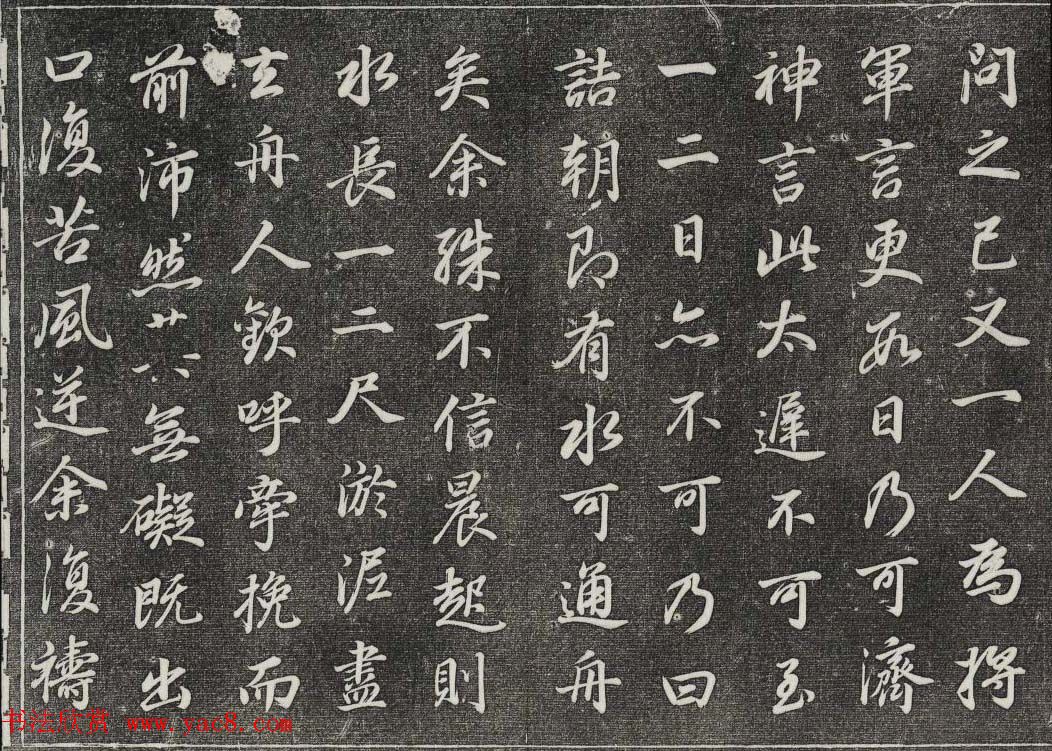 問之已又一人為將
軍言更數日乃可濟
神言此太遲不可至
一二日亦不可乃曰
詰朝即有水可通舟
矣余殊不信晨起則
水長一二尺淤泥盡
去舟人歡呼牽挽而
前沛然廿六無礙既出
口復苦風逆余復禱
书法欣赏 www.yac8.com